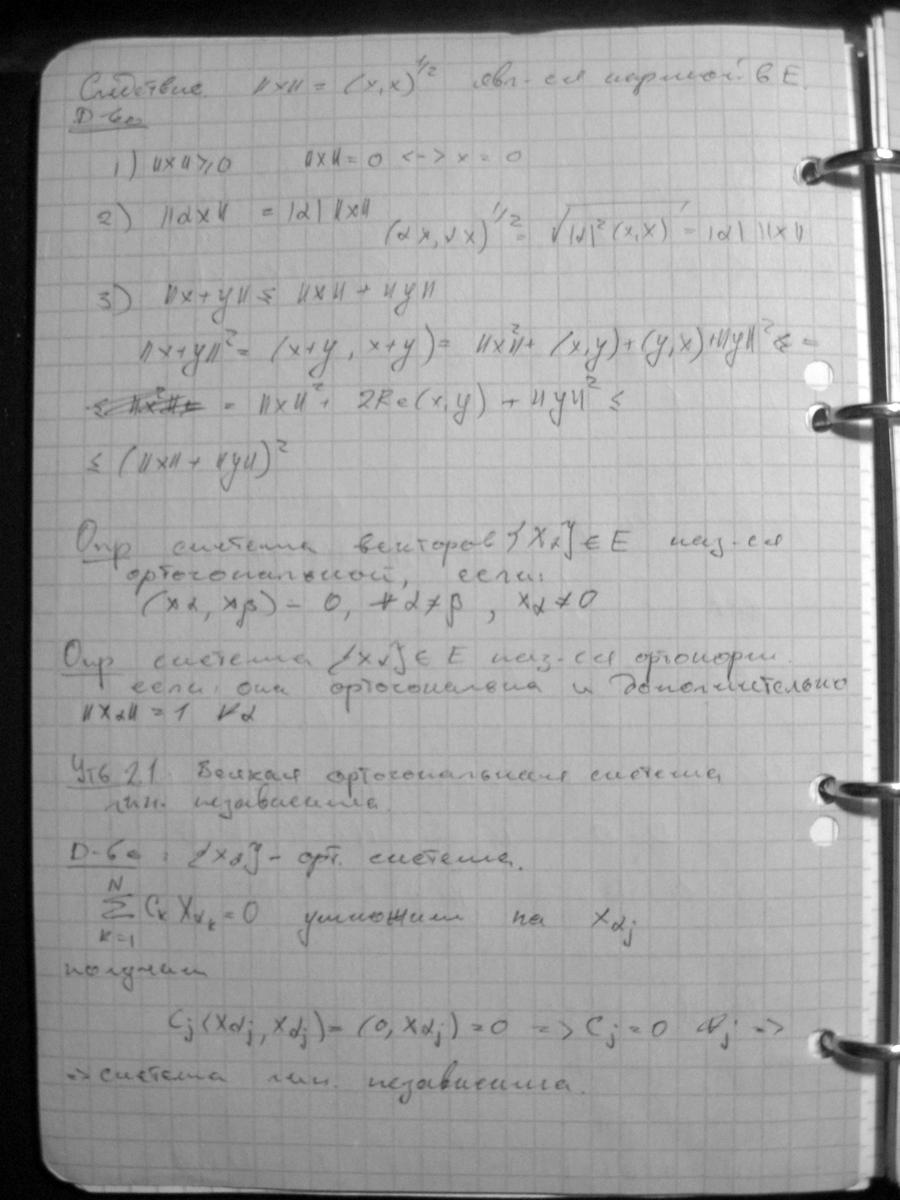 Следствие. ||x|| = (x,x)^{1/2} явл-ся нормой в E.
Д-во
1) ||x|| ≥ 0 ||x|| = 0 <-> x = 0
2) ||αx|| = |α| ||x||
(αx, αx)^{1/2} = √(|α|²(x,x)) = |α| ||x||
3) ||x+y|| ≤ ||x|| + ||y||
||x+y||² = (x+y, x+y) = ||x²|| + (x,y)+(y,x)+||y||² =
= ||x||² + 2Re(x,y) + ||y||² ≤
≤ (||x|| + ||y||)²
Опр система векторов {x_α} ∈ E наз-ся
ортогональной, если:
(x_α, x_β) = 0, ∀ α ≠ β, x_α ≠ 0
Опр система {x_α} ∈ E наз-ся ортонорм.
если она ортогональна и дополнительно
||x_α|| = 1 ∀α
Утв 2.1. Всякая ортогональная система
лин. независима.
Д-во: {x_α} - орт. система.
∑_{k=1}^{N} C_k x_{α_k} = 0 умножим на x_{α_j}
получим
C_j (x_{α_j}, x_{α_j}) = (0, x_{α_j}) = 0 => C_j = 0 ∀j =>
=> система лин. независима.